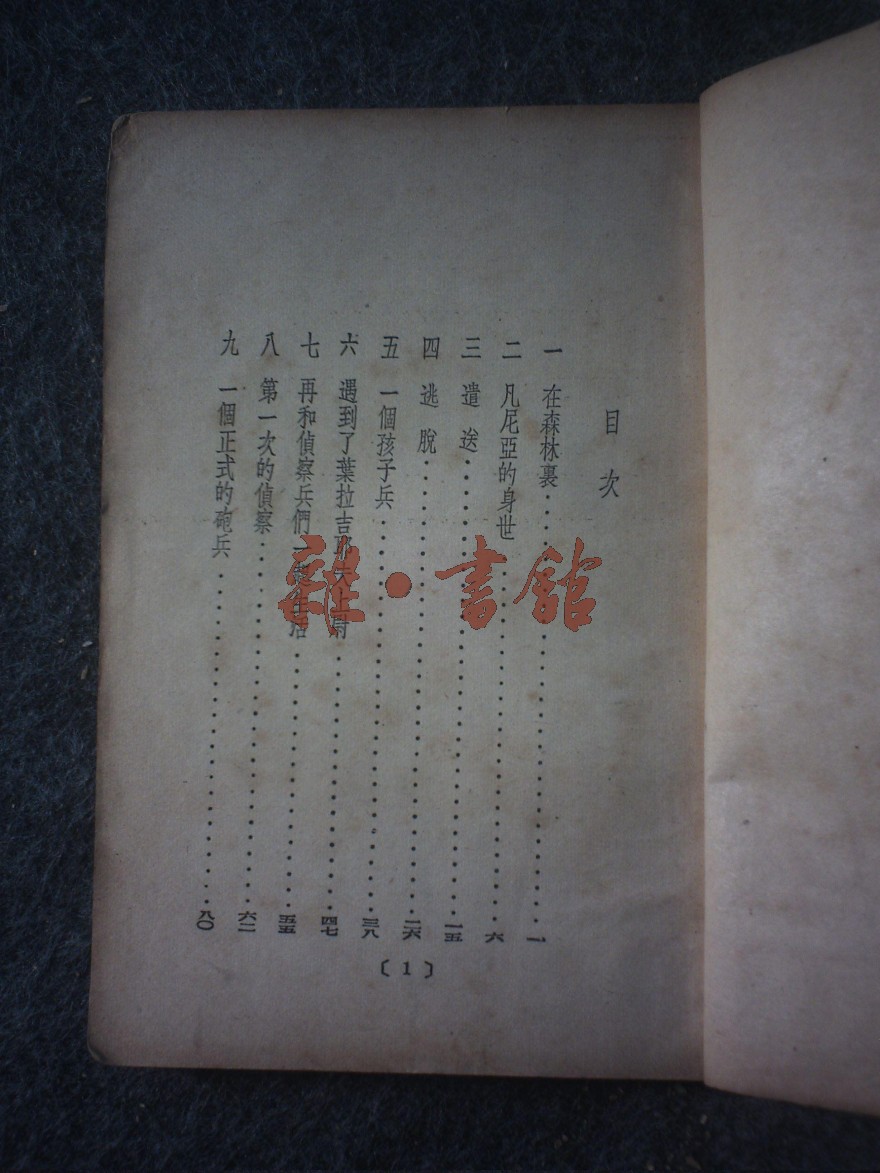 目次
一 在森林裏……一
二 凡尼亞的身世……六
三 遣送……一五
四 逃脫……二六
五 一個孩子兵……三八
六 遇到了葉拉吉 夫上尉……四七
七 再和偵察兵們一 生活……五五
八 第一次的偵察……六二
九 一個正式的砲兵……八〇
〔1〕
雜·書館